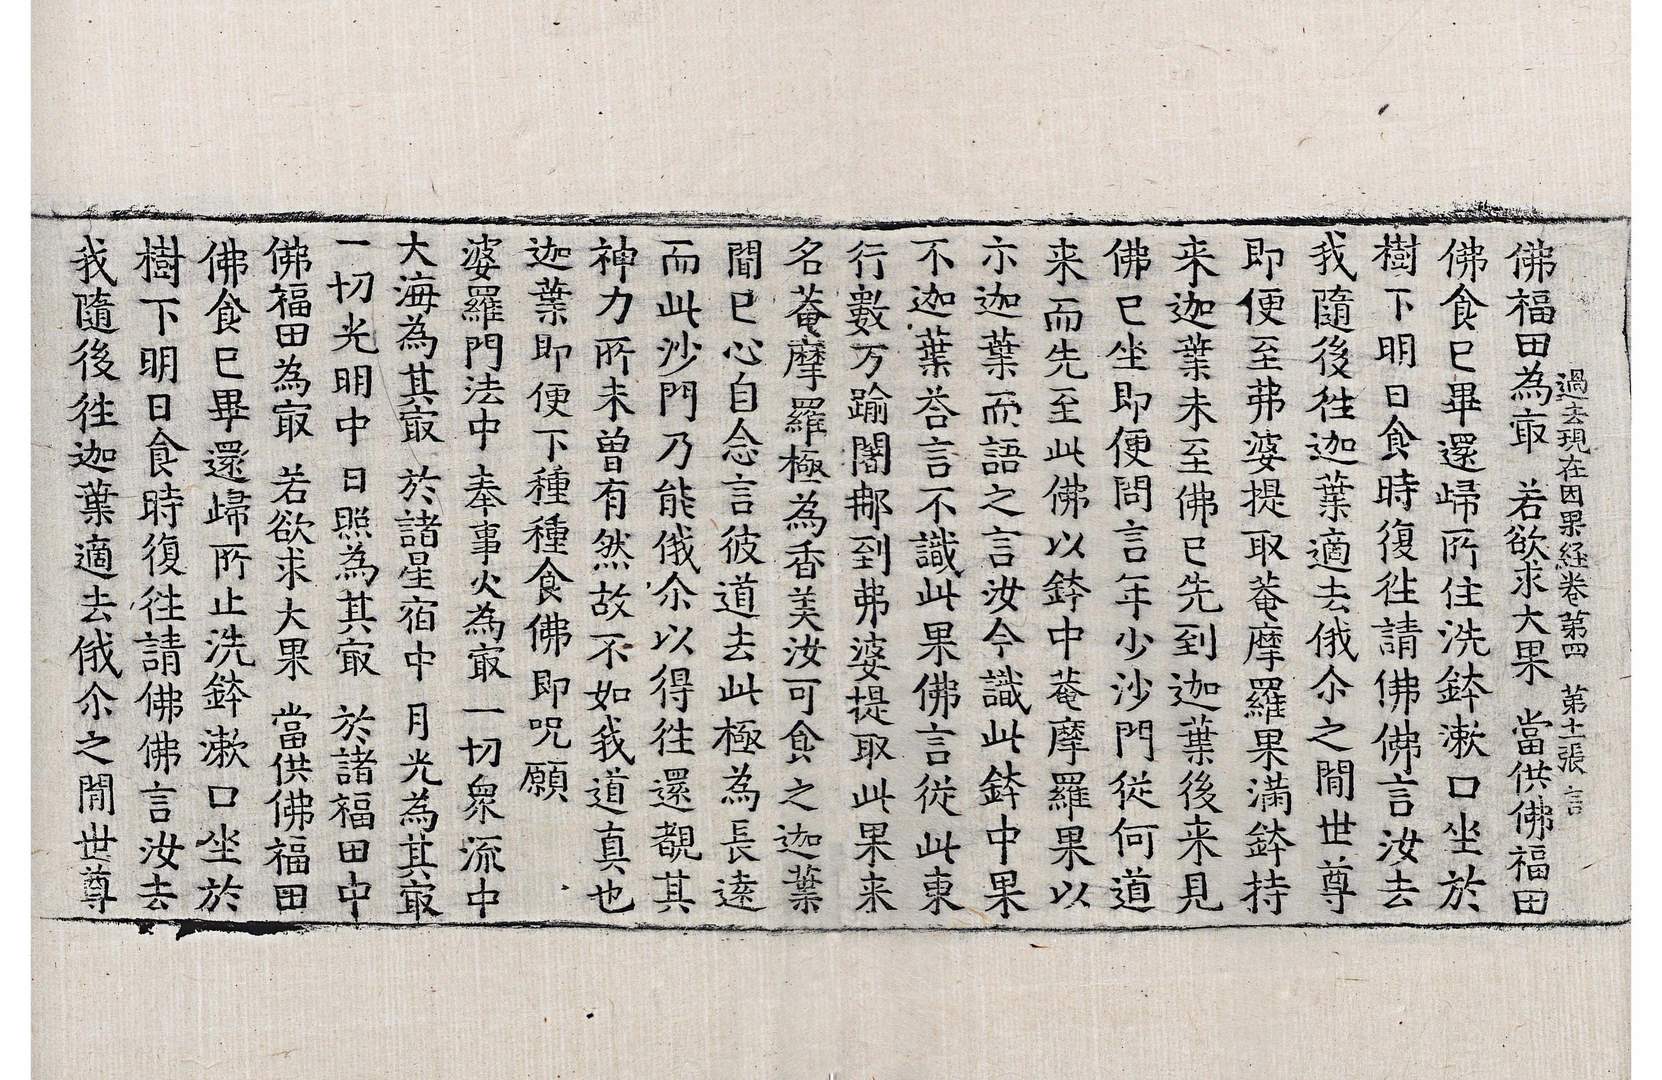 過去現在因果経卷第四 第十一張 言
佛福田為冣 若欲求大果 當供佛福田
佛食已畢還歸所住洗鉢漱口坐於
樹下明日食時復徃請佛佛言汝去
我隨後徃迦葉適去俄尒之間世尊
即便至弗婆提取菴摩羅果滿鉢持
来迦葉未至佛已先到迦葉後来見
佛已坐即便問言年少沙門從何道
来而先至此佛以鉢中菴摩羅果以
示迦葉而語之言汝今識此鉢中果
不迦葉荅言不識此果佛言從此東
行數万踰闍那到弗婆提取此果来
名菴摩羅極為香美汝可食之迦葉
聞已心自念言彼道去此極為長遠
而此沙門乃能俄尒以得徃還覩其
神力所未曾有然故不如我道真也
迦葉即便下種種食佛即呪願
婆羅門法中 奉事火為冣 一切衆流中
大海為其冣 於諸星宿中 月光為其冣
一切光明中 日照為其冣 於諸福田中
佛福田為冣 若欲求大果 當供佛福田
佛食已畢還歸所止洗鉢漱口坐於
樹下明日食時復徃請佛佛言汝去
我隨後徃迦葉適去俄尒之間世尊